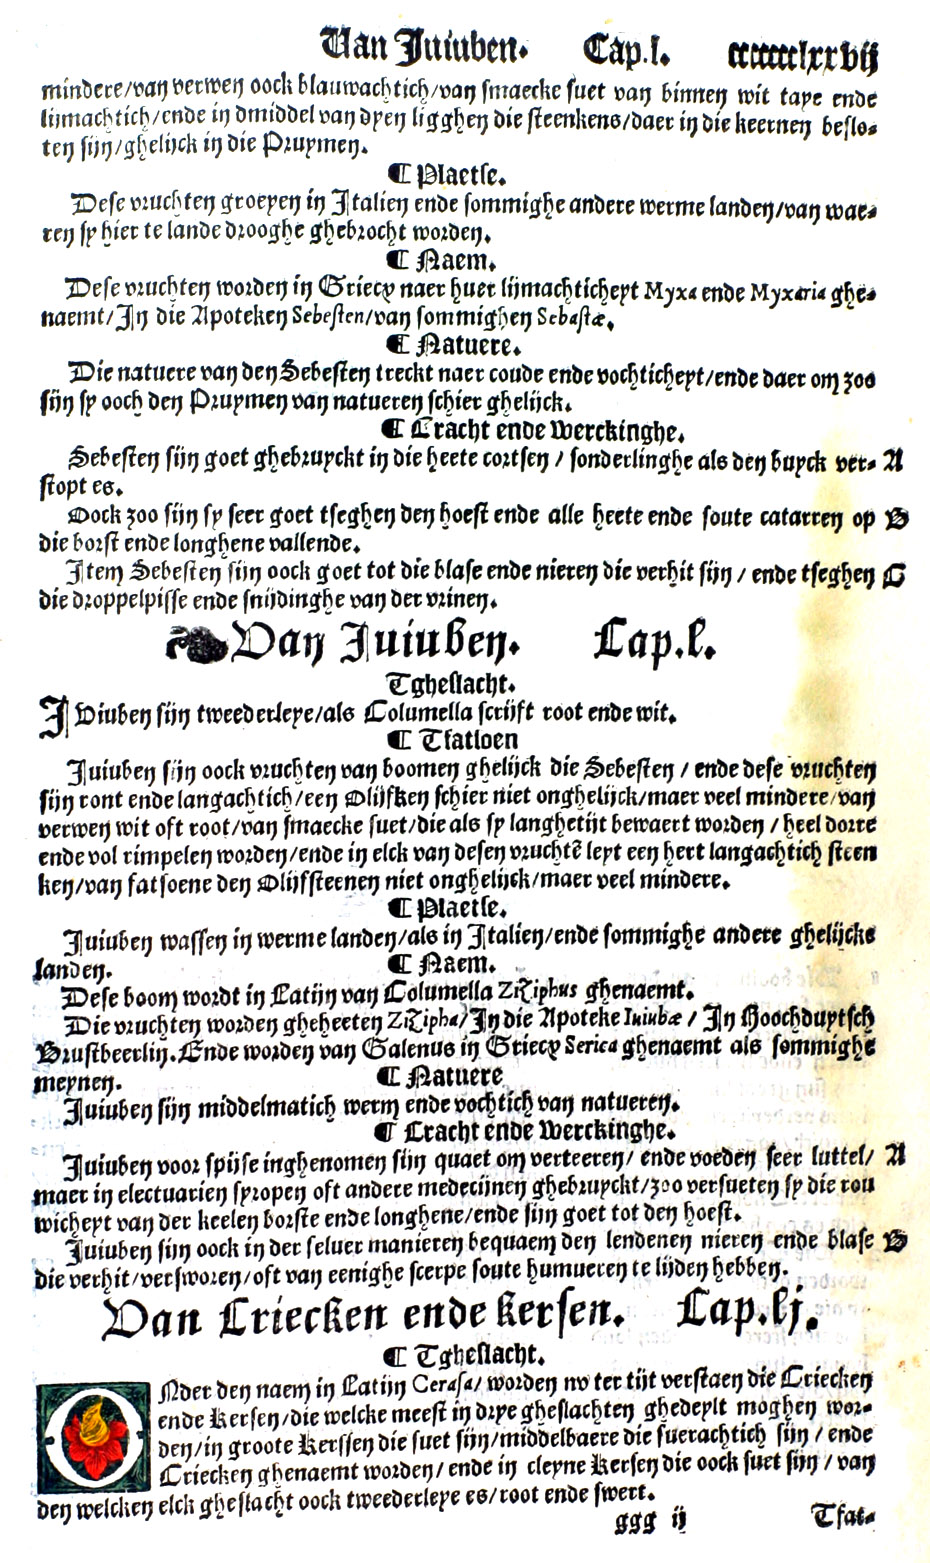 Van Juiuben. Cap.l. ccccccclxxvij
mindere/van verwen oock blauwachtich/van smaecke suet van binnen wit taye ende
lijmachtich/ende in dmiddel van dyen ligghen die steenkens/daer in die keernen beslo-
ten sijn/ghelijck in die Pruymen.
¶ Plaetse.
Dese vruchten groeyen in Italien ende sommighe andere werme landen/van wae-
ren sy hier te lande drooghe ghebrocht worden.
¶ Naem.
Dese vruchten worden in Griecx naer huer lijmachticheyt Myxa ende Myxaria ghe-
naemt/In die Apoteken Sebesten/van sommighen Sebastæ.
¶ Natuere.
Die natuere van den Sebesten treckt naer coude ende vochticheyt/ende daer om zoo
sijn sy ooch den Pruymen van natueren schier ghelijck.
¶ Cracht ende Werckinghe.
Sebesten sijn goet ghebruyckt in die heete cortsen / sonderlinghe als den buyck ver- A
stopt es.
Oock zoo sijn sy seer goet tseghen den hoest ende alle heete ende soute catarren op B
die borst ende longhene vallende.
Item Sebesten sijn oock goet tot die blase ende nieren die verhit sijn / ende tseghen C
die droppelpisse ende snijdinghe van der vrinen.
Van Juiuben. Cap.l.
Tgheslacht.
IViuben sijn tweederleye/als Columella scrijft root ende wit.
¶ Tfatsoen
Juiuben sijn oock vruchten van boomen ghelijck die Sebesten / ende dese vruchten
sijn ront ende langachtich/een Olijfken schier niet onghelijck/maer veel mindere/van
verwen wit oft root/van smaecke suet/die als sy langhetijt bewaert worden / heel dorre
ende vol rimpelen worden/ende in elck van desen vruchtē leyt een hert langachtich steen
ken/van fatsoene den Olijfsteenen niet onghelijck/maer veel mindere.
¶ Plaetse.
Juiuben wassen in werme landen/als in Italien/ende sommighe andere ghelijcke
landen. ¶ Naem.
Dese boom wordt in Latijn van Columella Ziziphus ghenaemt.
Die vruchten worden gheheeten Zizipha/In die Apoteke Iuiubæ / In Hoochduytsch
Brustbeerlin. Ende worden van Galenus in Griecx Serica ghenaemt als sommighe
meynen. ¶ Natuere
Juiuben sijn middelmatich werm ende vochtich van natueren.
¶ Cracht ende Werckinghe.
Juiuben voor spijse inghenomen sijn quaet om verteeren/ ende voeden seer luttel/ A
maer in electuarien syropen oft andere medecijnen ghebruyckt/zoo versueten sy die rou
wicheyt van der keelen borste ende longhene/ende sijn goet tot den hoest.
Juiuben sijn oock in der seluer manieren bequaem den lendenen nieren ende blase B
die verhit/versworen/oft van eenighe scerpe soute humueren te lijden hebben.
Van Criecken ende Kersen. Cap.lj.
¶ Tgheslacht.
ONder den naem in Latijn Cerasa/ worden nv ter tijt verstaen die Criecken
ende Kersen/die welcke meest in drye gheslachten ghedeylt moghen wor-
den/in groote Kerssen die suet sijn/middelbaere die suerachtich sijn / ende
Criecken ghenaemt worden/ ende in cleyne Kersen die oock suet sijn / van
den welcken elck gheslacht oock tweederleye es/root ende swert.
ggg ij Tfat-